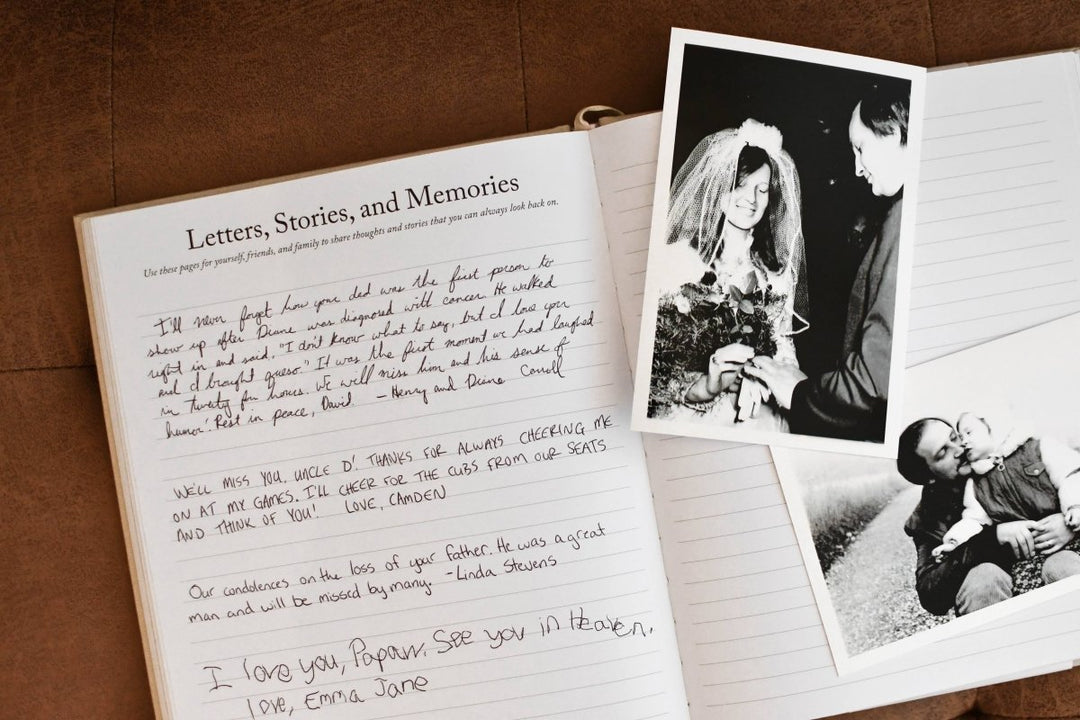 Letters, Stories, and Memories
Use these pages for yourself, friends, and family to share thoughts and stories that you can always look back on.
I'll never forget how your dad was the first person to
show up after Diane was diagnosed with cancer. He walked
right in and said, "I don't know what to say, but I love you
and I brought queso." It was the first moment we had laughed
in twenty four hours. We will miss him and his sense of
humor! Rest in peace, David. - Henry and Diane Carroll
WE'LL MISS YOU, UNCLE D! THANKS FOR ALWAYS CHEERING ME
ON AT MY GAMES. I'LL CHEER FOR THE CUBS FROM OUR SEATS
AND THINK OF YOU! LOVE, CAMDEN
Our condolences on the loss of your father. He was a great
man and will be missed by many. -Linda Stevens
I love you, Papaw. See you in Heaven.
love, Emma Jane